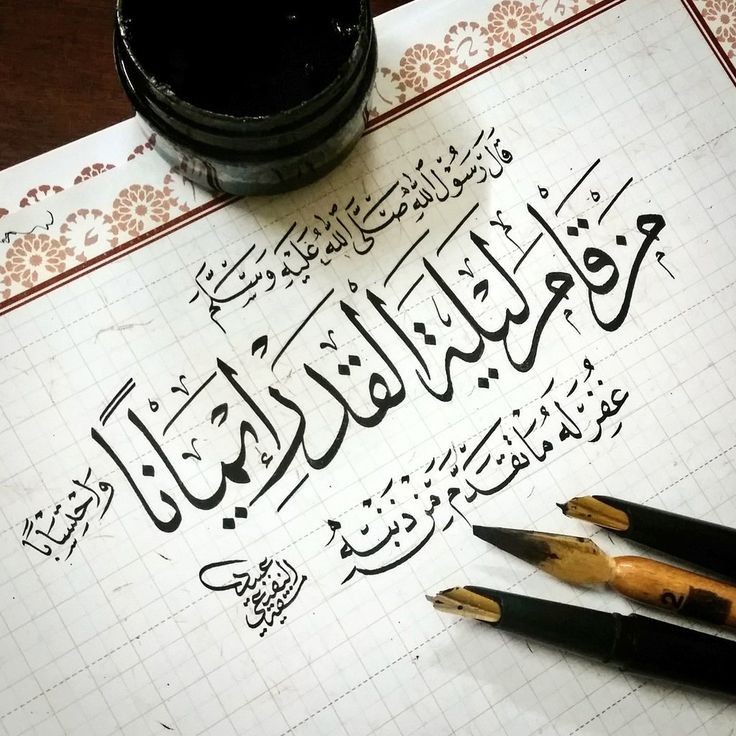 قَالَ رَسُوْلُ اللهِ صَلَّى اللهُ عَلَيْهِ وَسَلَّمَ
مَن قَامَ لَيْلَةَ القَدرِ إِيمَانًا
وَاحْتِسَابًا
غُفِرَ لَهُ مَا تَقَدَّمَ مِنْ ذَنْبِهِ
عبيدة
النفيعي
2